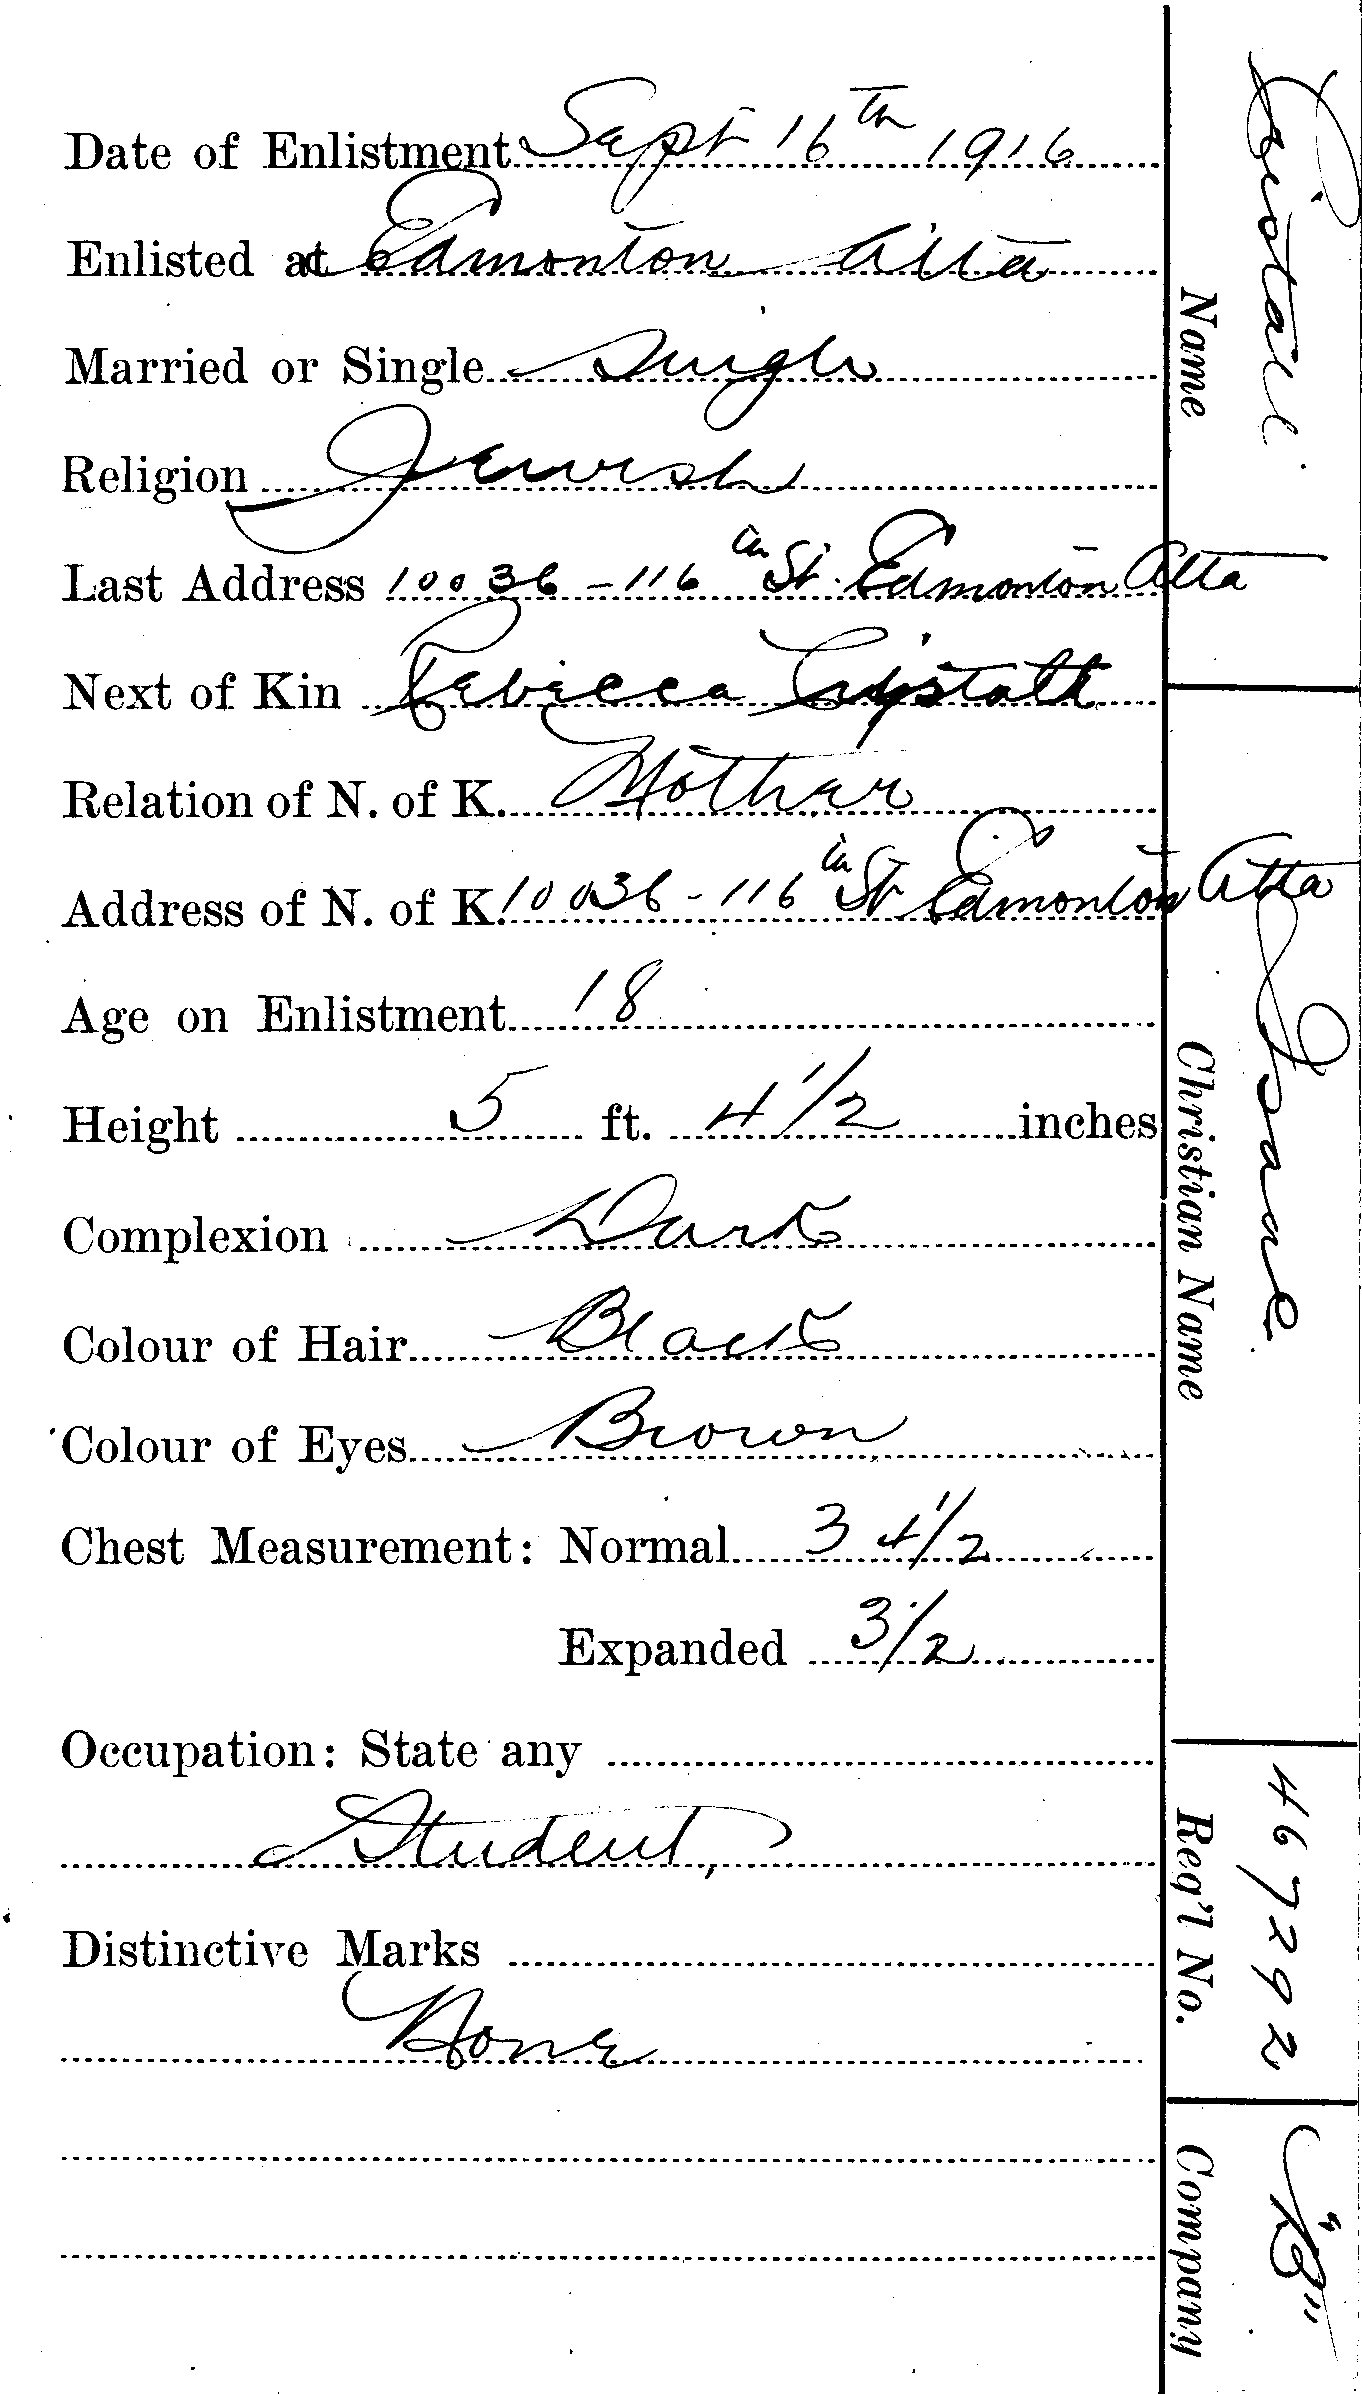 Date of Enlistment Sept 16th 1916
Enlisted at Edmonton Alta
Married or Single Single
Religion Jewish
Last Address 10036 - 116th St. Edmonton Alta
Next of Kin Rebecca
Relation of N. of K. Mother
Address of N. of K. 10036 - 116th St Edmonton Alta
Age on Enlistment 18
Height 5 ft. 4 1/2 inches
Complexion Dark
Colour of Hair Black
Colour of Eyes Brown
Chest Measurement: Normal 34 1/2
Expanded 3 1/2
Occupation: State any
Student,
Distinctive Marks
None
Cristall
Name
Isaac
Christian Name
467292
Reg'l No.
"B"
Company